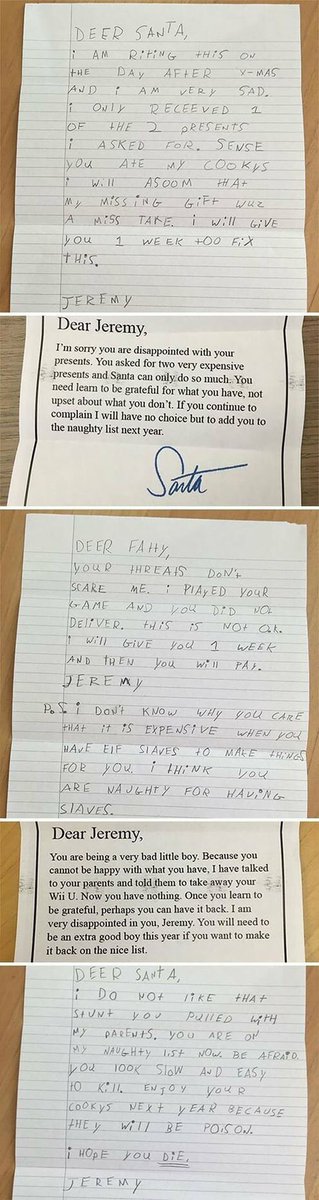 DEER SANTA,
i AM RiTiNG THiS ON
THE DAY AFTER X-MAS
AND i AM VERY SAD.
i ONLY RECEEVED 1
OF THE 2 PRESENTS
i ASKED FOR. SENSE
YOU ATE MY COOKYS
i Will ASOOM THAT
MY MiSSiNG GiFT WUZ
A MiSS TAKE. i Will GiVE
YOU 1 WEEK TOO FiX
THiS.
JEREMY
Dear Jeremy,
I'm sorry you are disappointed with your
presents. You asked for two very expensive
presents and Santa can only do so much. You
need learn to be grateful for what you have, not
upset about what you don't. If you continue to
complain I will have no choice but to add you to
the naughty list next year.
Santa
DEER FATTY,
YOUR THREATS DON'T
SCARE ME. i PLAYED YOUR
GAME AND YOU DiD NOT
DELiVER. THiS iS NOT OK.
i Will GiVE YOU 1 WEEK
AND THEN YOU Will PAY.
JEREMY
P.S i DON'T KNOW WHY YOU CARE
THAT iT iS EXPENSiVE WHEN YOU
HAVE ElF SlAVES TO MAKE THiNGS
FOR YOU. i THiNK YOU
ARE NAUGHTY FOR HAViNG
SlAVES.
Dear Jeremy,
You are being a very bad little boy. Because you
cannot be happy with what you have, I have talked
to your parents and told them to take away your
Wii U. Now you have nothing. Once you learn to
be grateful, perhaps you can have it back. I am
very disappointed in you, Jeremy. You will need to
be an extra good boy this year if you want to make
it back on the nice list.
DEER SANTA,
i DO NOT liKE THAT
STUNT YOU PULLED WiTH
MY PARENTS. YOU ARE ON
MY NAUGHTY liST NOW. BE AFRAiD.
YOU lOOK SlOW AND EASY
TO Kill. ENJOY YOUR
COOKYS NEXT YEAR BECAUSE
THEY Will BE POiSON.
i HOPE YOU DiE.
JEREMY